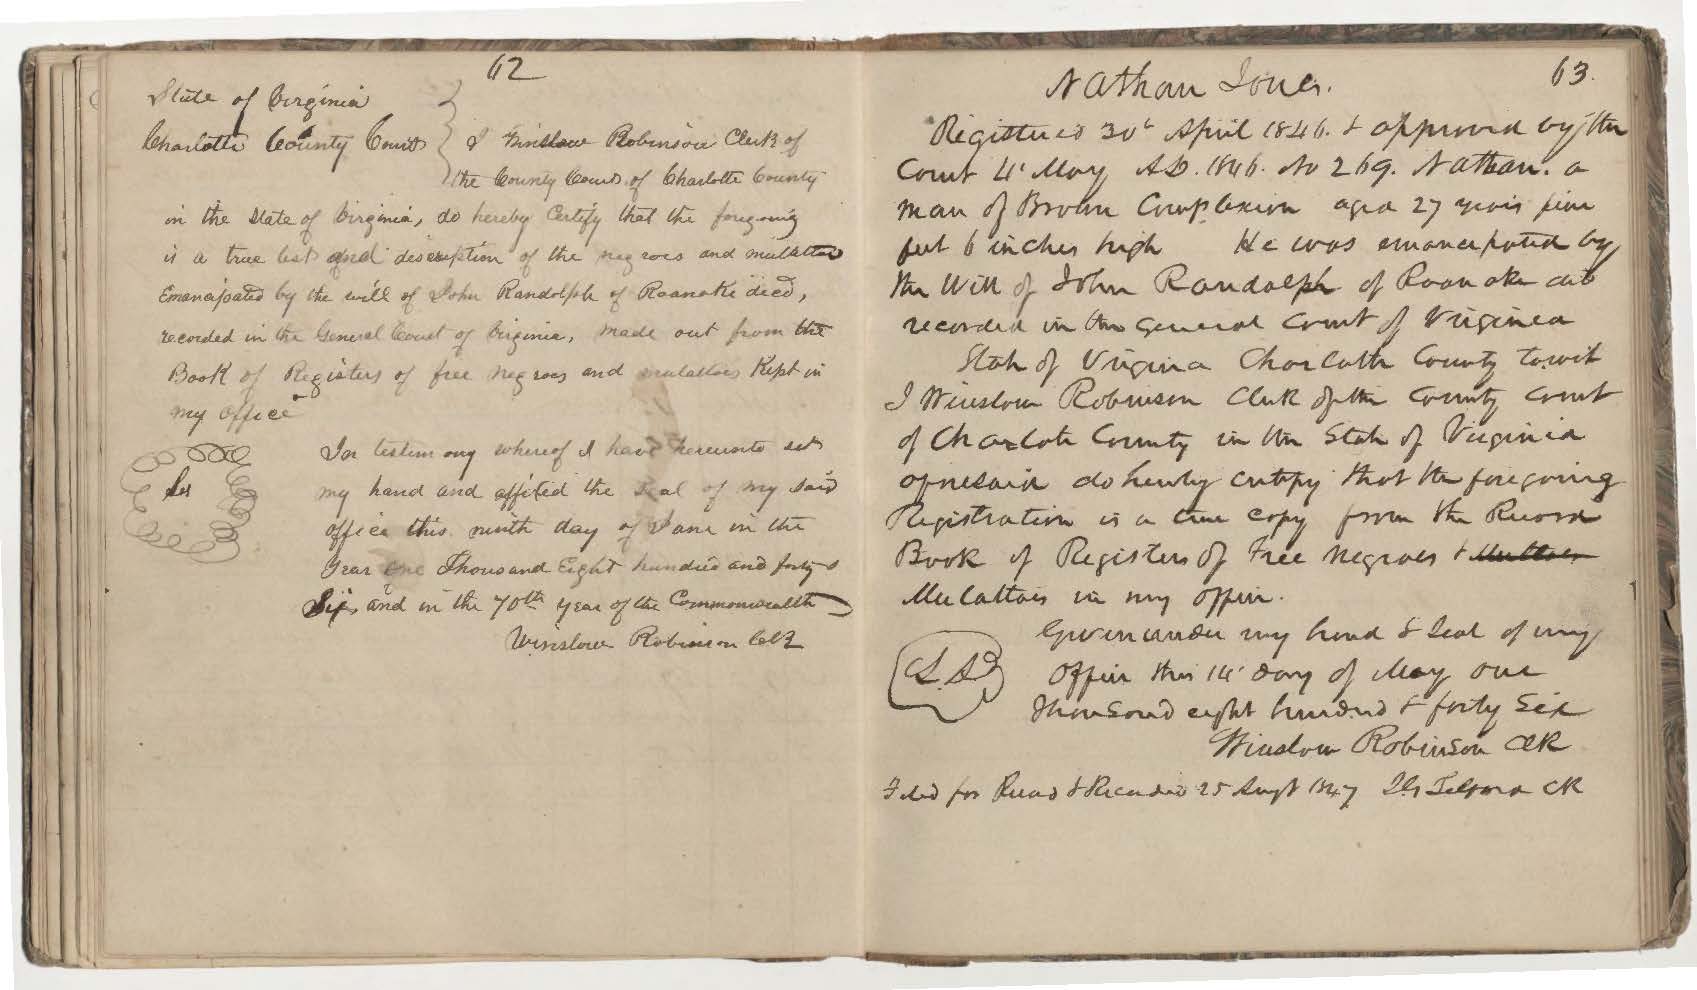 62
State of Virginia
Charlotte County Court } I Winslow Robinson Clerk of
the County Court of Charlotte County
in the State of Virginia, do hereby Certify that the foregoing
is a true list and description of the negroes and mulattoes
Emancipated by the will of John Randolph of Roanoke decd,
recorded in the General Court of Virginia, made out from the
Book of Registers of free negroes and mulattoes Kept in
my office
In testimony whereof I have hereunto set
my hand and affixed the Seal of my said
office this ninth day of June in the
Year one Thousand Eight hundred and forty
Six and in the 70th year of the Commonwealth
Winslow Robinson Clk
63.
Nathan Jones.
Registered 30t April 1846. & approved by the
Court 4t May AD. 1846. No 269. Nathan. a
man of Brown Complexion aged 27 years five
feet 6 inches high He was emancipated by
the Will of John Randolph of Roanoke
recorded in the General Court of Virginia
State of Virginia Charlotte County towit
I Winslow Robinson Clerk of the County Court
of Charlotte County in the State of Virginia
aforesaid do hereby certify that the foregoing
Registration is a true copy from the Record
Book of Registers of Free Negroes & Mulattoes
Mulattois in my office.
Given under my hand & Seal of my
L.S.
office this 14t day of May one
thousand eight hundred & forty six
Winslow Robinson Clk
Filed for Record & Recorded 25 Augt 1847 Telford Clk